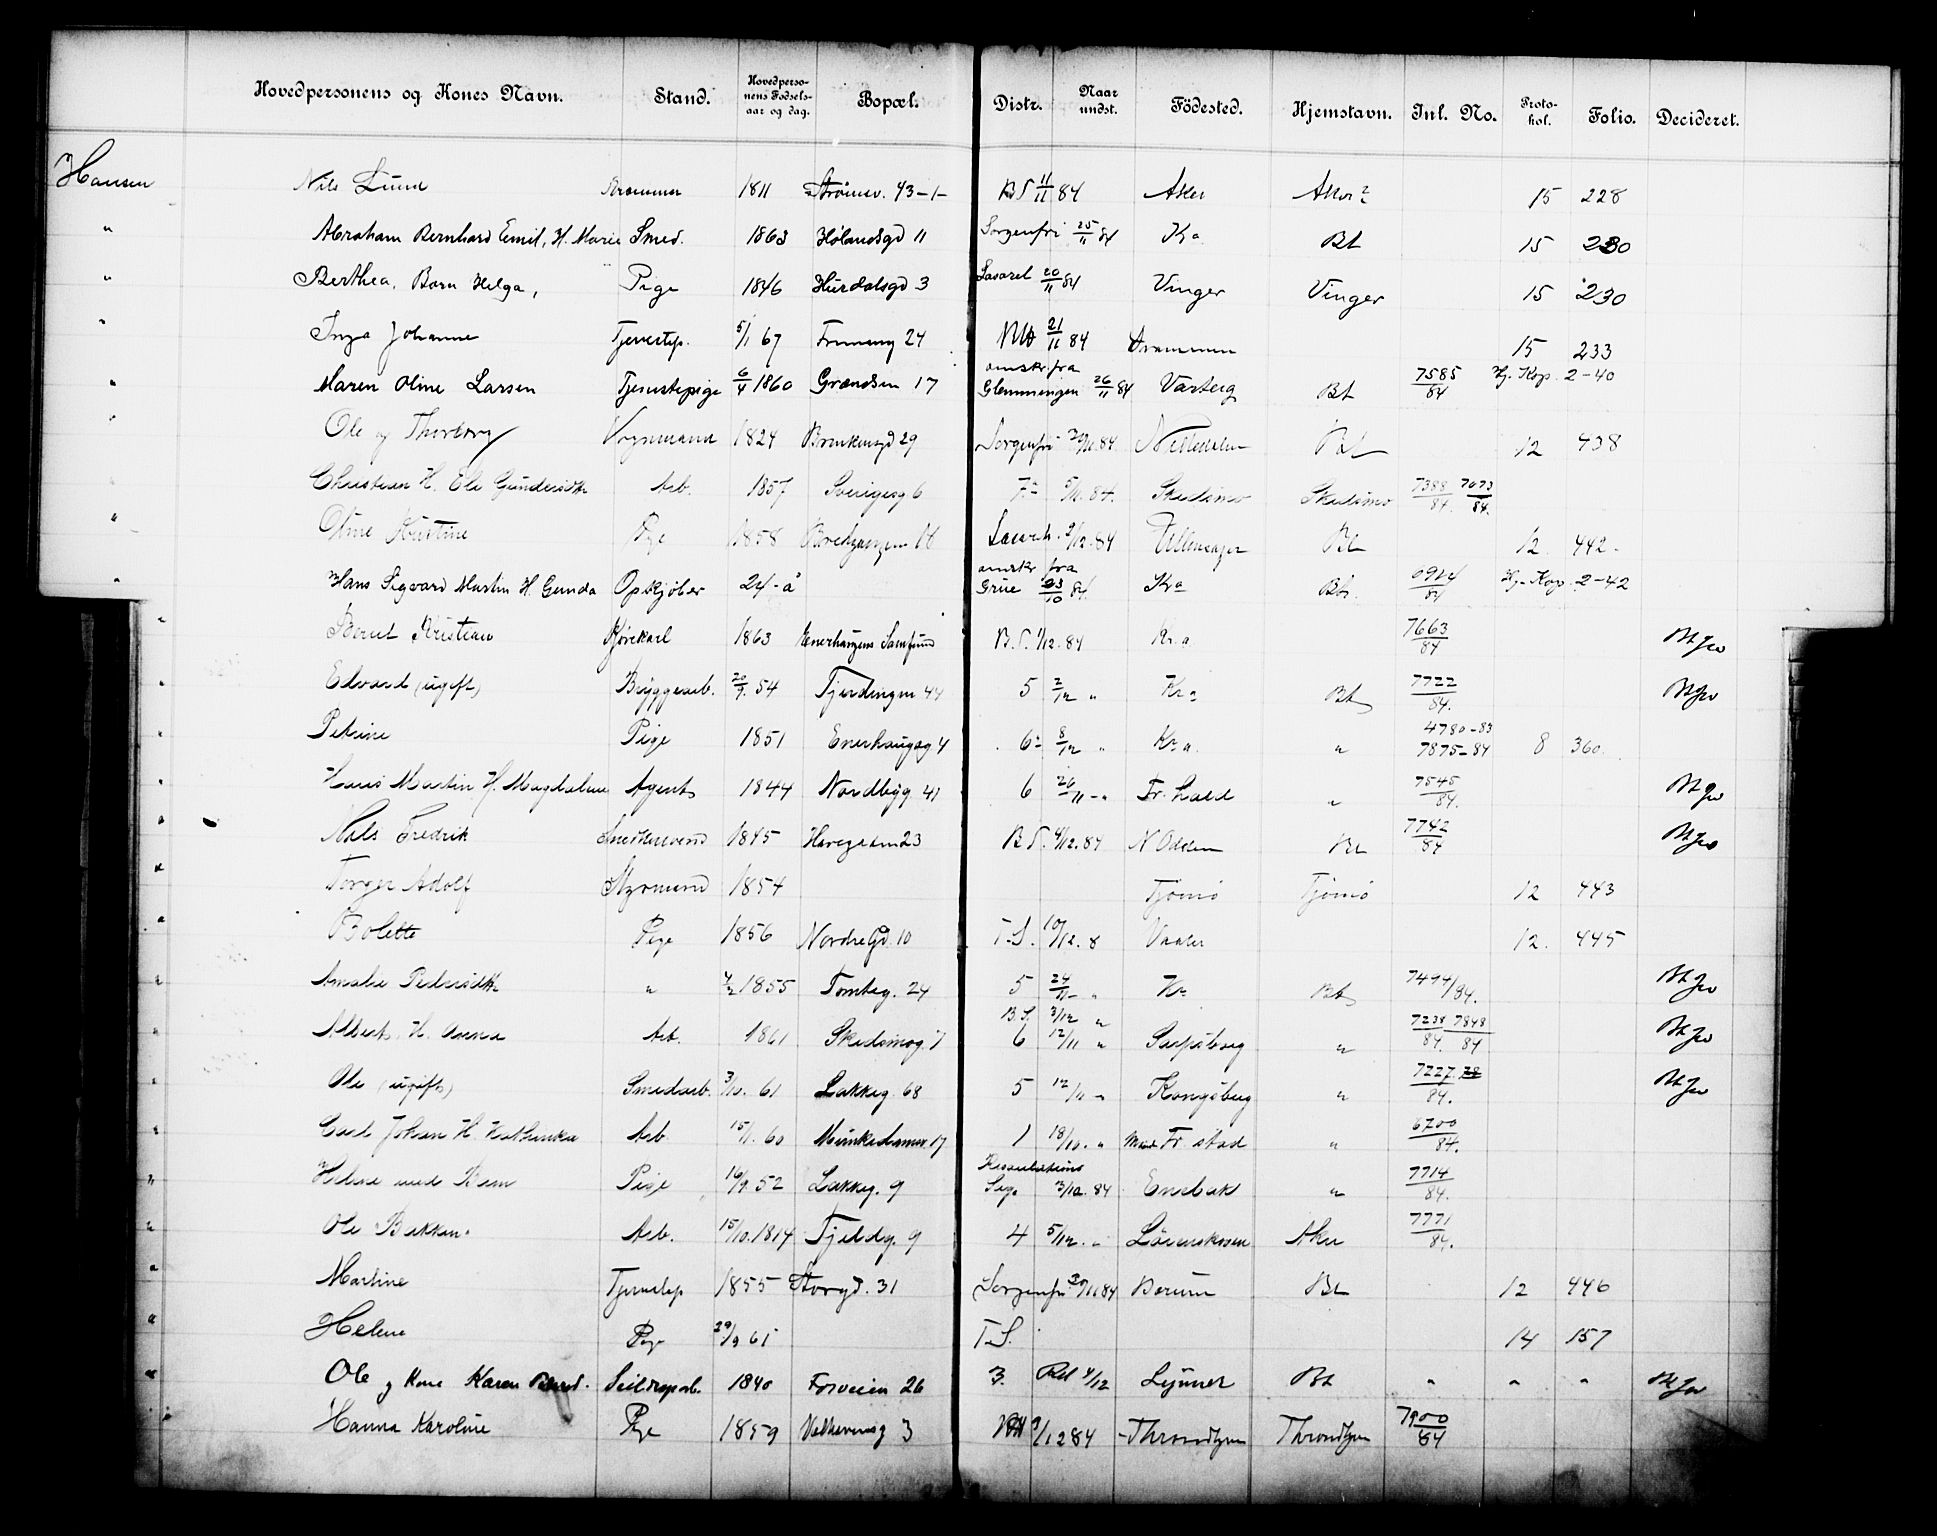 Hovedpersonens og Kones Navn. Stand. Hovedpersonens Fødselsaar og dag. Bopæl. Distr. Naar undst. Födested. Hjemstavn. Inl. No. Protokol. Folio. Decideret.
Hansen Nils Lund 1811 Strømsv. 43-1- BS 11/11 84 Aker Aker? 15 228
" Abraham Bernhard Emil, H. Marie Smed. 1863 Hølandsgd 11 Sorgenfri 25/11 84 Kra Bt 15 230
" Berthea, Barn Helga, Pige 1846 Hurdalsgd 3 Lasaret 20/11 84 Vinger Vinger 15 230
" Inga Johanne Tjenestep. 5/1 67 24 21/11 84 Drammen 15 233
" Maren Oline Larsen Tjenestepige 6/4 1860 Grændsen 17 omskr. fra Glemmingen 26/11 84 Varteig Bt 7585/84 Hj. Kop. 2-40
" Ole og Thorborg Vognmand 1824 Brinkensgd 29 Sorgenfri 84 Nittedalen Bt 12 438
" Christian H. Eli Gundersdtr Arb. 1857 Sverigesg 6 7de 5/11. 84. Skedsmo Skedsmo 7388/84. 7073/84.
" Oline Kristine Pige 1858 Lasareth. 2/12. 84 Ullensager Bt 12. 442.
" Hans Sigvard Martin H. Gunda Opkjøber 24 - å omskr fra Grue 23/10 84. Kra Bt. 0924/84 Hj. Kop. 2-42
" Bernt Kristian Kjørekarl 1863 Enerhaugens Samfund B.S. 1/12. 84 Kr.a 7663/84 Bt Jo
" Edvard (ugift) Bryggearb. 20/9. 54 Fjerdingen 44 5 2/12 " Kra Bt 7722/84. Bt Jo
" Petrine Pige 1851 Enerhaugsg 4 6te 8/12 " Kra " 4780-83 7875-84 8 360.
" Hans Martin H. Magdalene Agent 1844 Nordbyg. 41 6 26/11 - " Fr. hald " 7545/84. Bt Jo
" Nils Fredrik Snedkersvend 1845 Havegaden 23 B S. 4/12. 84 N Odalen Bt 7742/84 Bt Jo
" Torger Adolf Styrmand 1854 Tjömö Tjömö 12 443
" Bolette Pige 1856 Nordre Gd. 10 T.S. 10/12. 8 Vaaler 12. 445
" Amalie Pedersdtr " 1855 Tomteg. 24 5 24/11 - " Kra Bt 7494/84. Bt Jo
" Albert, H. Anna Arb. 1861 Skedsmog. 7 B.S. 3/12 " 6 12/11 " Sarpsborg " 7238/84. 7848/84 Bt Jo
" Ole (ugift) Smedarb. 3/10. 61 Lakkeg. 68 5 12/11 " Kongsberg " 7227/84. Bt Jo
" Carl Johan H. Kathinka Arb. 15/1. 60 Munkedamsv. 17 1 18/10. " Fr. stad " 6700/84.
" Helene med Barn Pige 16/9. 52 Lakkeg. 9 Resolutions Seg. 3/12. 84 Enebak " 7714/84.
" Ole Bakken. Arb. 15/10. 1814 Fjeldg. 9 4 5/12. " Lörenskoen Aker 7771/84.
" Martine Tjenestep 1855 Storgd. 31 Sorgenfri 20/11 84 Berum Bt 12 446
" Helene Pige 29/9 61 T.S. 14 157
" Ole og Kone Karen Seildugsarb. 1840 Fosveien 26 3. Rst 4/12 Lynner Bt " " " Bt Jo
Hanna Karoline Pige 1859 3 9/12 84 Throndhjem Throndhjem 7900/84